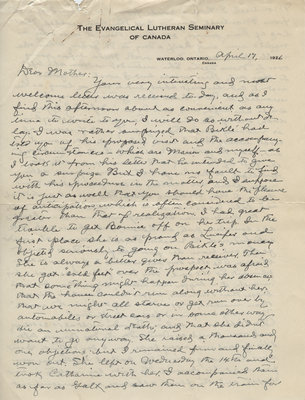 THE EVANGELICAL LUTHERAN SEMINARY
OF CANADA
WATERLOO, ONTARIO, April 17, 1926
Canada
Dear Mother:
Your very interesting and most
welcome letter was received to-day, and as I
find this afternoon about as convenient as any
time to write to you, I will do so without de-
lay. I was rather surprised that had
told you of his proposed visit and the accompany-
ing contingencies which are and myself, as
I took it from his letter that he intended to give
you a surprise. But I have no fault to find
with his procedure in the matter and I suppose
it is just as well that you should have the pleasure
of anticipation, which is often considered to be
greater than that of realization. I had great
trouble to get off on the trip. In the
first place she is as proud as Lucifer and
objected seriously to going on money.
She is always a better giver than receiver. Then
she got cold feet over the prospect, was afraid
that something might happen during her absence,
that the house couldn't run along without her,
that we might all starve or get run over by
automobiles or street cars or in some other way
die an unnatural death, and that she didn't
want to go anyway. She raised a thousand and
one objections but I remained firm and finally
won out. She left on Wednesday the 14th and
took Catharine with her. I accompanied them
as far as Galt and saw them on the train for